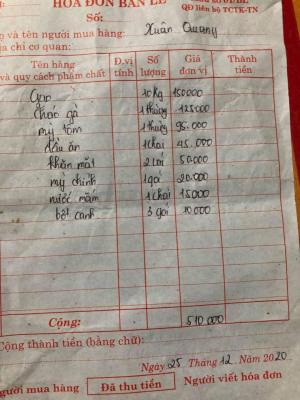 HÓA ĐƠN BÁN LẺ
QĐ liên bộ TCTK-TN
Số:
ọ và tên người mua hàng: Xuân Quang
ịa chỉ cơ quan:
Tên hàng và quy cách phẩm chất Đ.vị tính Số lượng Giá đơn vị Thành tiền
Gạo 10kg 150000
cháo gà 1 thùng 125000
mỳ tôm 1 thùng 95.000
dầu ăn 1 chai 45.000
khăn mặt 2 cái 50.000
mỳ chính 1 gói 20.000
nước mắm 1 chai 15000
bột canh 3 gói 10000
Cộng: 510 000
Cộng thành tiền (bằng chữ):
Ngày 25 Tháng 12 Năm 2020
gười mua hàng Đã thu tiền Người viết hóa đơn